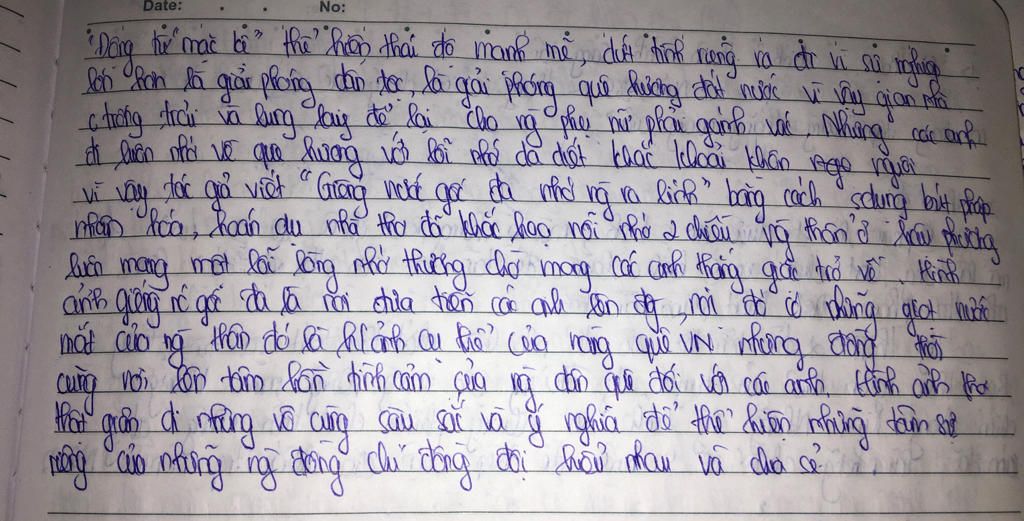 Date: . . No:
"Động từ "mặc kệ" thể hiện thái độ mạnh mẽ, dứt tình riêng ra đi vì sự nghiệp
lớn hơn là giải phóng dân tộc, là giải phóng quê hương đất nước vì vậy gian nhà
trống trải và lung lay để lại cho ng phụ nữ phải gánh vác. Nhưng các anh
đi luôn nhớ về quê hương với lỗi nhớ da diết khắc khoải khôn người
vì vậy tác giả viết "Giếng nước gốc đa nhớ ng ra lính" bằng cách sdụng bút pháp
nhân hóa, hoán dụ nhà thơ đã khắc họa nỗi nhớ 2 chiều ng thân ở hậu phương
luôn mang một lối sống nhớ thương chờ mong các anh thắng giặc trở về. Hình
ảnh giếng nc gốc đa là nơi chia tiễn các anh lên đg, nơi đó có những giọt nước
mắt của ng thân đó là hỉ ảnh cụ thể của nông quê VN nhưng đồng thời
cũng nói lên tâm hồn tình cảm của ng dân quê đối với các anh. Hình ảnh thơ
thật giản dị nhưng vô cùng sâu sắc và ý nghĩa để thể hiện những tâm sự
nông của những ng đồng chí đồng đội hiểu nhau và chia sẻ.